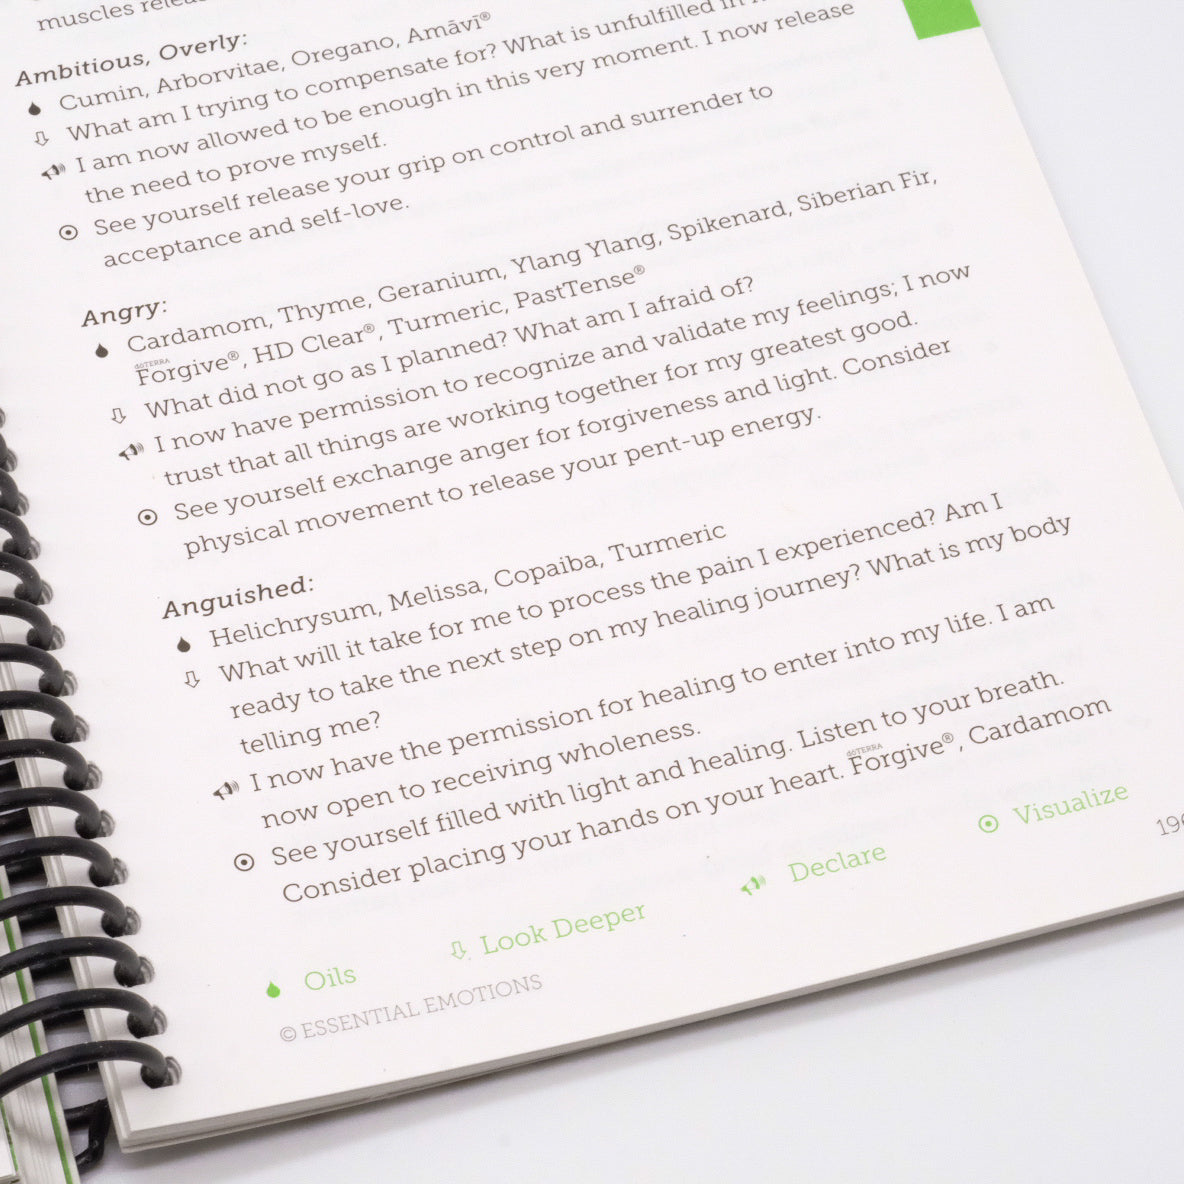 muscles
Ambitious, Overly:
Cumin, Arborvitae, Oregano, Amāvī®
What am I trying to compensate for? What is unfulfilled in
I am now allowed to be enough in this very moment. I now release
the need to prove myself.
See yourself release your grip on control and surrender to
acceptance and self-love.
Angry:
Cardamom, Thyme, Geranium, Ylang Ylang, Spikenard, Siberian Fir,
dōTERRA Forgive®, HD Clear®, Turmeric, PastTense®
What did not go as I planned? What am I afraid of?
I now have permission to recognize and validate my feelings; I now
trust that all things are working together for my greatest good.
See yourself exchange anger for forgiveness and light. Consider
physical movement to release your pent-up energy.
Anguished:
Helichrysum, Melissa, Copaiba, Turmeric
What will it take for me to process the pain I experienced? Am I
ready to take the next step on my healing journey? What is my body
telling me?
I now have the permission for healing to enter into my life. I am
now open to receiving wholeness.
See yourself filled with light and healing. Listen to your breath.
Consider placing your hands on your heart. dōTERRA Forgive®, Cardamom
Oils Look Deeper Declare Visualize
© ESSENTIAL EMOTIONS 196